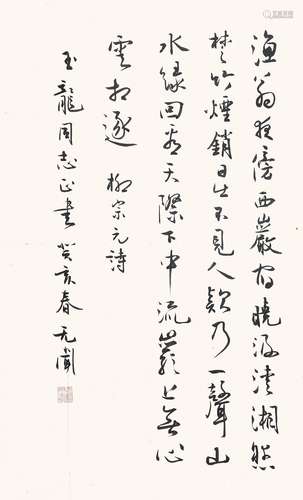 渔翁夜傍西巖宿曉汲清湘燃
楚竹煙銷日出不見人欸乃一聲山
水綠回看天際下中流巖上無心
雲相逐 柳宗元詩
玉龍同志正書 癸亥春 无聞